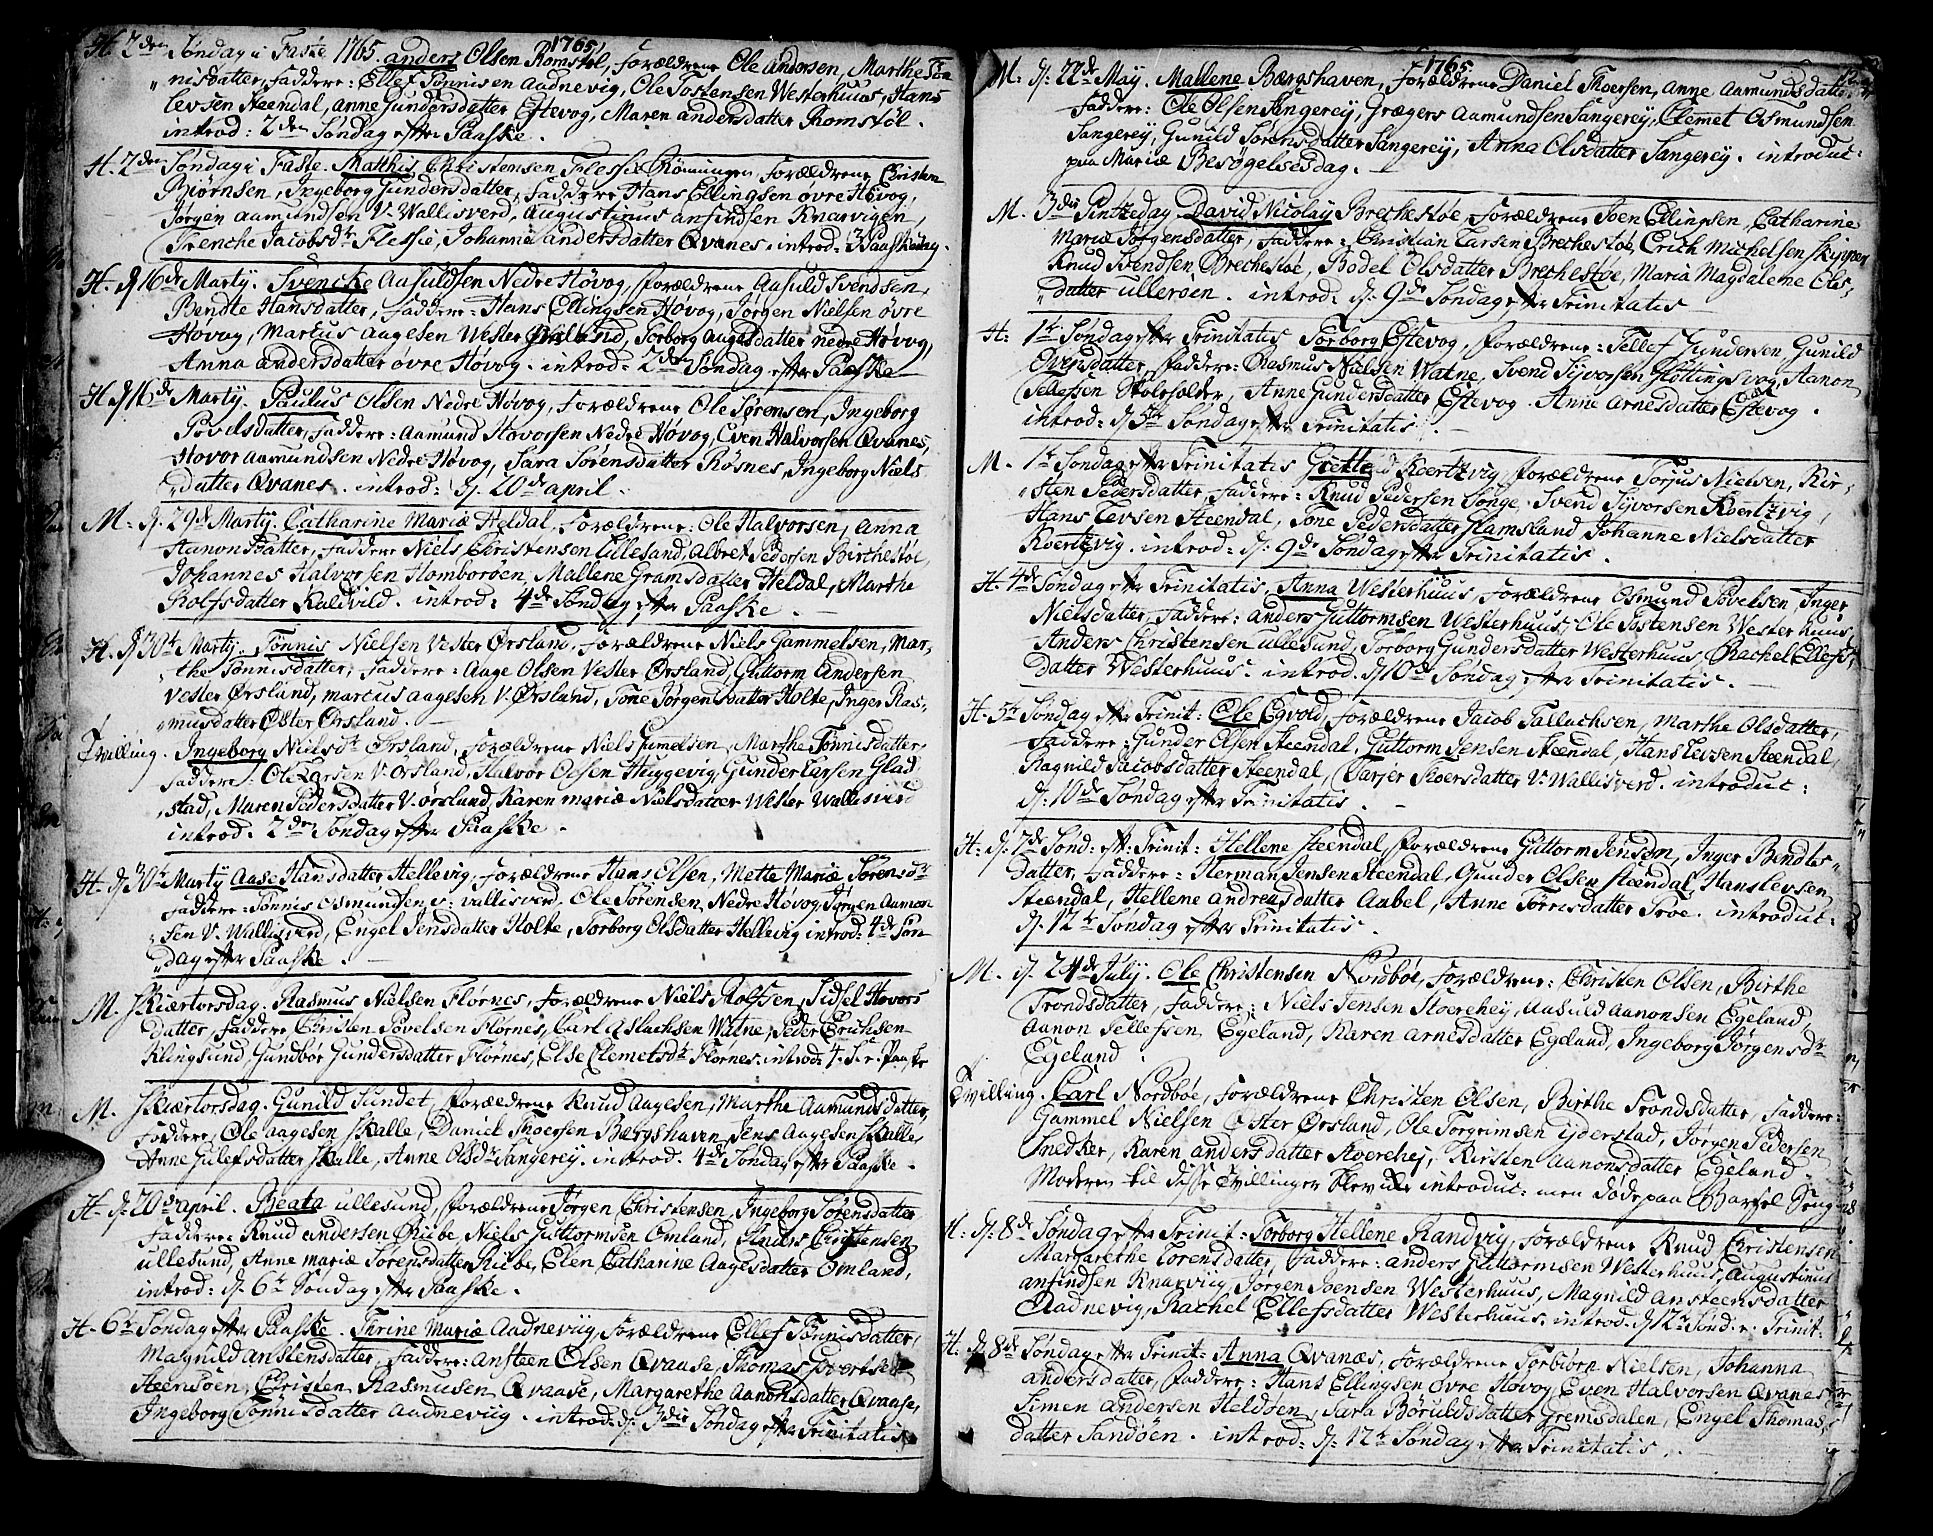 1765
H. 2den Søndag i Faste 1765. anders Olsen Romstøl, Forældrene Ole Andersen, Marthe Tøn-
nisdatter, Faddere: Ellef Tønnisen Aadnevig, Ole Tostensen Westerhuus, Hans
Levsen Steendal, Anne Gundersdatter Estevog, Maren andersdatter Romstøl.
introd: 2den Søndag efter Paaske.
H. 2den Søndag i Faste. Matthis Christensen Flessie Rønningen, Forældrene Christen
Biørnsen, Ingeborg Gundersdatter, Faddere Hans Ellingsen øvre Høvog,
Jørgen Aamundsen V. Wallisverd, Augustinus ansindsen Knarvigen,
Trenche Jacobsdr Flessie, Johanne andersdatter Qvanes. introd: 3 Paaskedag.
H. d. 16de Martij. Svencke Aasuldsen Nedre Høvog, Forældrene Aasuld Svendsen,
Bendte Hansdatter, Faddere: Hans Ellingsen Høvog, Jørgen Nielsen øvre
Høvog, Marcus Aagesen Wester Ørsland, Torborg Aagesdatter nedre Høvog,
Anna andersdatter øvre Høvog. introd: 2den Søndag efter Paaske
H. d. 16de Martij. Paulus Olsen Nedre Høvog, Forældrene Ole Sørensen, Ingeborg
Povelsdatter, Faddere: Aamund Hovorsen Nedre Høvog, Even Halvorsen Qvanes,
Hovor Aamundsen Nedre Høvog, Sara Sørensdatter Røsnes, Ingeborg Niels
datter Qvanes. introd: d. 20de april.
M. d. 29de Martij. Catharine Mariæ Heldal, Forældrene: Ole Halvorsen, Anna
Aanonsdatter, Faddere Niels Christensen Lillesand, Albret Pedersen Birchestøl,
Johannes Halvorsen Homborøen, Mallene Gramsdatter Heldal, Marthe
Rolfsdatter Kaldvild. introd: 4de Søndag efter Paaske.
H. d. 30te Martij. Tønnis Nielsen Vester Ørsland, Forældrene Niels Gammelsen, Mar-
the Tønnisdatter, Faddere: Aage Olsen Vester Ørsland, Guttorm Andersen
Vester Ørsland, Marcus aagesen V. Ørsland, Tone Jørgensdatter Holte, Inger Ras-
musdatter Øster Ørsland.
Tvilling. Ingeborg Nielsdr Ørsland, Forældrene Niels Gumelsen, Marthe Tønnisdatter,
Faddere: Ole Larsen V. Ørsland, Halvor Olsen Huggevig, Gunder Larsen Glad
stad, Maren Pedersdatter V. ørslund, Karen mariæ Nielsdatter Wester Wallisverd
introd. 2den Søndag efter Paaske.
H. d. 30te Martij Aase Hansdatter Hellevig, Forældrene Hans Olsen, Mette Mariæ Sørensdr
Faddere: Tønnis Osmundsen v: vallisverd, Ole Sørensen, Nedre Høvog, Jørgen Aamon
sen V. Wallisverd, Engel Jensdatter Holte, Torborg Olsdatter Hellevig introd: 4de Søn
dag efter Paaske.
M. Skiærtorsdag. Rasmus Nielsen Flørnes, Forældrene Niels Rolfsen, Sidsel Hovors
datter, Faddere Christen Povelsen Flørnes, Carl Aslachsen Watne, Peder Erichsen
Klingsund, Gundbor Gundersdatter Flørnes, Else Clemetsdr Flørnes. introd: 4. S. e. Paaske
M. Skiærtorsdag. Gunild Sundet, Forældrene Knud Aagesen, Marthe Aamundsdatter,
Faddere, Ole Aagesen Skalle, Daniel Thoersen Bærgshaven, Jens Aagesen Skalle,
Anne Gulefsdatter Skalle, Anne Olsdr Sangerey. introd. 4de Søndag efter Paaske.
H. d. 20de april. Beata ullesund, Forældrene Jørgen Christensen, Ingeborg Sørensdatter,
Faddere: Knud andersen Riibe, Niels Guttormsen Omland, Anders Christensen
ullesund, Anne mariæ Sørensdatter Riibe, Elen Catharine Aagesdatter Omland,
introd: d. 6te Søndag efter Paaske.
H. 6te Søndag efter Paaske. Thrine Mariæ Aadneviig, Forældrene Ellef Tønnisdatter,
Magnild anstensdatter, Faddere: Ansteen Olsen Qvaase, Thomas Govertsen
Steensøen, Christen Rasmusen Qvaase, Margarethe Aanonsdatter Qvaase,
Ingeborg Tønnisdatter Aadneviig. introd: d. 3die Søndag efter Trinitatis
1765
M: d: 22de May. Mallene Bærgshaven, Forældrene Daniel Thoersen, Anne Aamundsdatter
Faddere: Ole Olsen Sangerey, Grægers Aamundsen Sangerey, Clemet Osmundsen
Sangerey, Gunild Sørensdatter Sangerey, Anna Olsdatter Sangerey. introduc:
paa Mariæ Besøgelsesdag.
M. 3die Pintzedag. David Nicolay Brechestøe, Forældrene Joen Ellingsen, Catharine
Mariæ Jørgensdatter, Faddere: Christian Larsen Brechestøe, Erich Michelsen Skipper
Knud Svendsen Brechestøe, Bodel Olsdatter Brechestøe, Maria Magdalene Ols,
datter ulleroen. introd: d: 9de Søndag efter Trinitatis
H: 1te Søndag efter Trinitatis Torborg Estevog, Forældrene: Tellef Gundersen, Gunild
Evensdatter, Faddere: Rasmus Nielsen Watne, Svend Syvorsen Glottingsvog, Aanon
Tellefsen Skoleholder, Anne Gundersdatter Estevog. Anne Arnesdatter Estevog.
introd: d. 5te Søndag efter Trinitatis.
M. 1te Søndag efter Trinitatis Grette Koertzvig, Forældrene Torjus Nielsen, Kir-
sten Pedersdatter, Faddere: Knud Pedersen Songe, Svend Syvorsen Koertzvig,
Hans Levsen Steendal, Tone Pedersdatter Hamsland Johanne Nielsdatter
Koertzvig. introd: d: 9de Søndag efter Trinitatis.
H. 4de Søndag efter Trinitatis. Anna Westerhuus, Forældrene Osmund Povelsen, Inger
Nielsdatter, Faddere: Anders Guttormsen Westerhuus, Ole Tostensen Westerhuus
Anders Christensen ullesund, Torborg Gundersdatter Westerhuus, Rachel Ellefs,
datter Westerhuus. introd. d. 10de Søndag efter Trinitatis.
H. 5te Søndag efter Trinit: Ole Egvold, Forældrene Jacob Tallachsen, Marthe Olsdatter,
Faddere: Gunder Olsen Steendal, Guttorm Jensen Steendal, Hans Levsen Steendal,
Ragnild Jacobsdatter Steendal, Tarjer Thoersdatter V. Wallisverd. introduc:
d: 10de Søndag efter Trinitatis.
H. d. 7de Sønd: eft: Trinit: Hellene Steendal, Forældrene Guttorm Jensen, Inger Bendts-
datter, Faddere: Herman Jensen Steendal, Gunder Olsen Steendal, Hans Levsen
Steendal, Hellene Andreasdatter Aabel, Anne Tørrisdatter Troe. introduct:
d. 12te Søndag efter Trinitatis.
M. d. 24de Julij. Ole Christensen Nordbøe, Forældrene: Christen Olsen, Birthe
Trondsdatter, Faddere: Niels Jensen Stoerehey, Aasuld Aanonsen Egeland,
Aanon Tellefsen Egeland, Karen Arnesdatter Egeland, Ingeborg Jørgensdr
Egeland.
Tvilling. Carl Nordbøe, Forældrene Christen Olsen, Birthe Trondsdatter, Faddere:
Gammel Nielsen Øster Ørsland, Ole Torgrimsen ijderstad, Jørgen Pedersen
Snedker, Karen andersdatter Stoerehej, Kirsten Aanonsdatter Egeland
Moderen til disse Tvillinger blev ikke introduc: men døde paa Barsel Seng
H. d. 8de Søndag efter Trinit: Torborg Hellene Randvig, Forældrene Knud Christensen
Margarethe Torensdatter, Faddere: anders Guttormsen Westerhuus, Augustinus
ansindsen Knarviig, Jørgen Joensen Westerhuus, Magnild Ansteensdatter
Aadnevig, Rachel Ellefsdatter Westerhuus. introd. d. 12te Sønd: e. Trinit:
H. d. 8de Søndag efter Trinit: Anna Qvanæs, Forældrene Torbiørn Nielsen, Johanna
andersdatter, Faddere: Hans Ellingsen Øvre Høvog, Even Halvorsen Qvanes
Simen andersen Heldsen, Sara Børuldsdatter Gremsdalen, Engel Thomas,
datter Sandøen. introd: d: 12te Søndag efter Trinitatis.